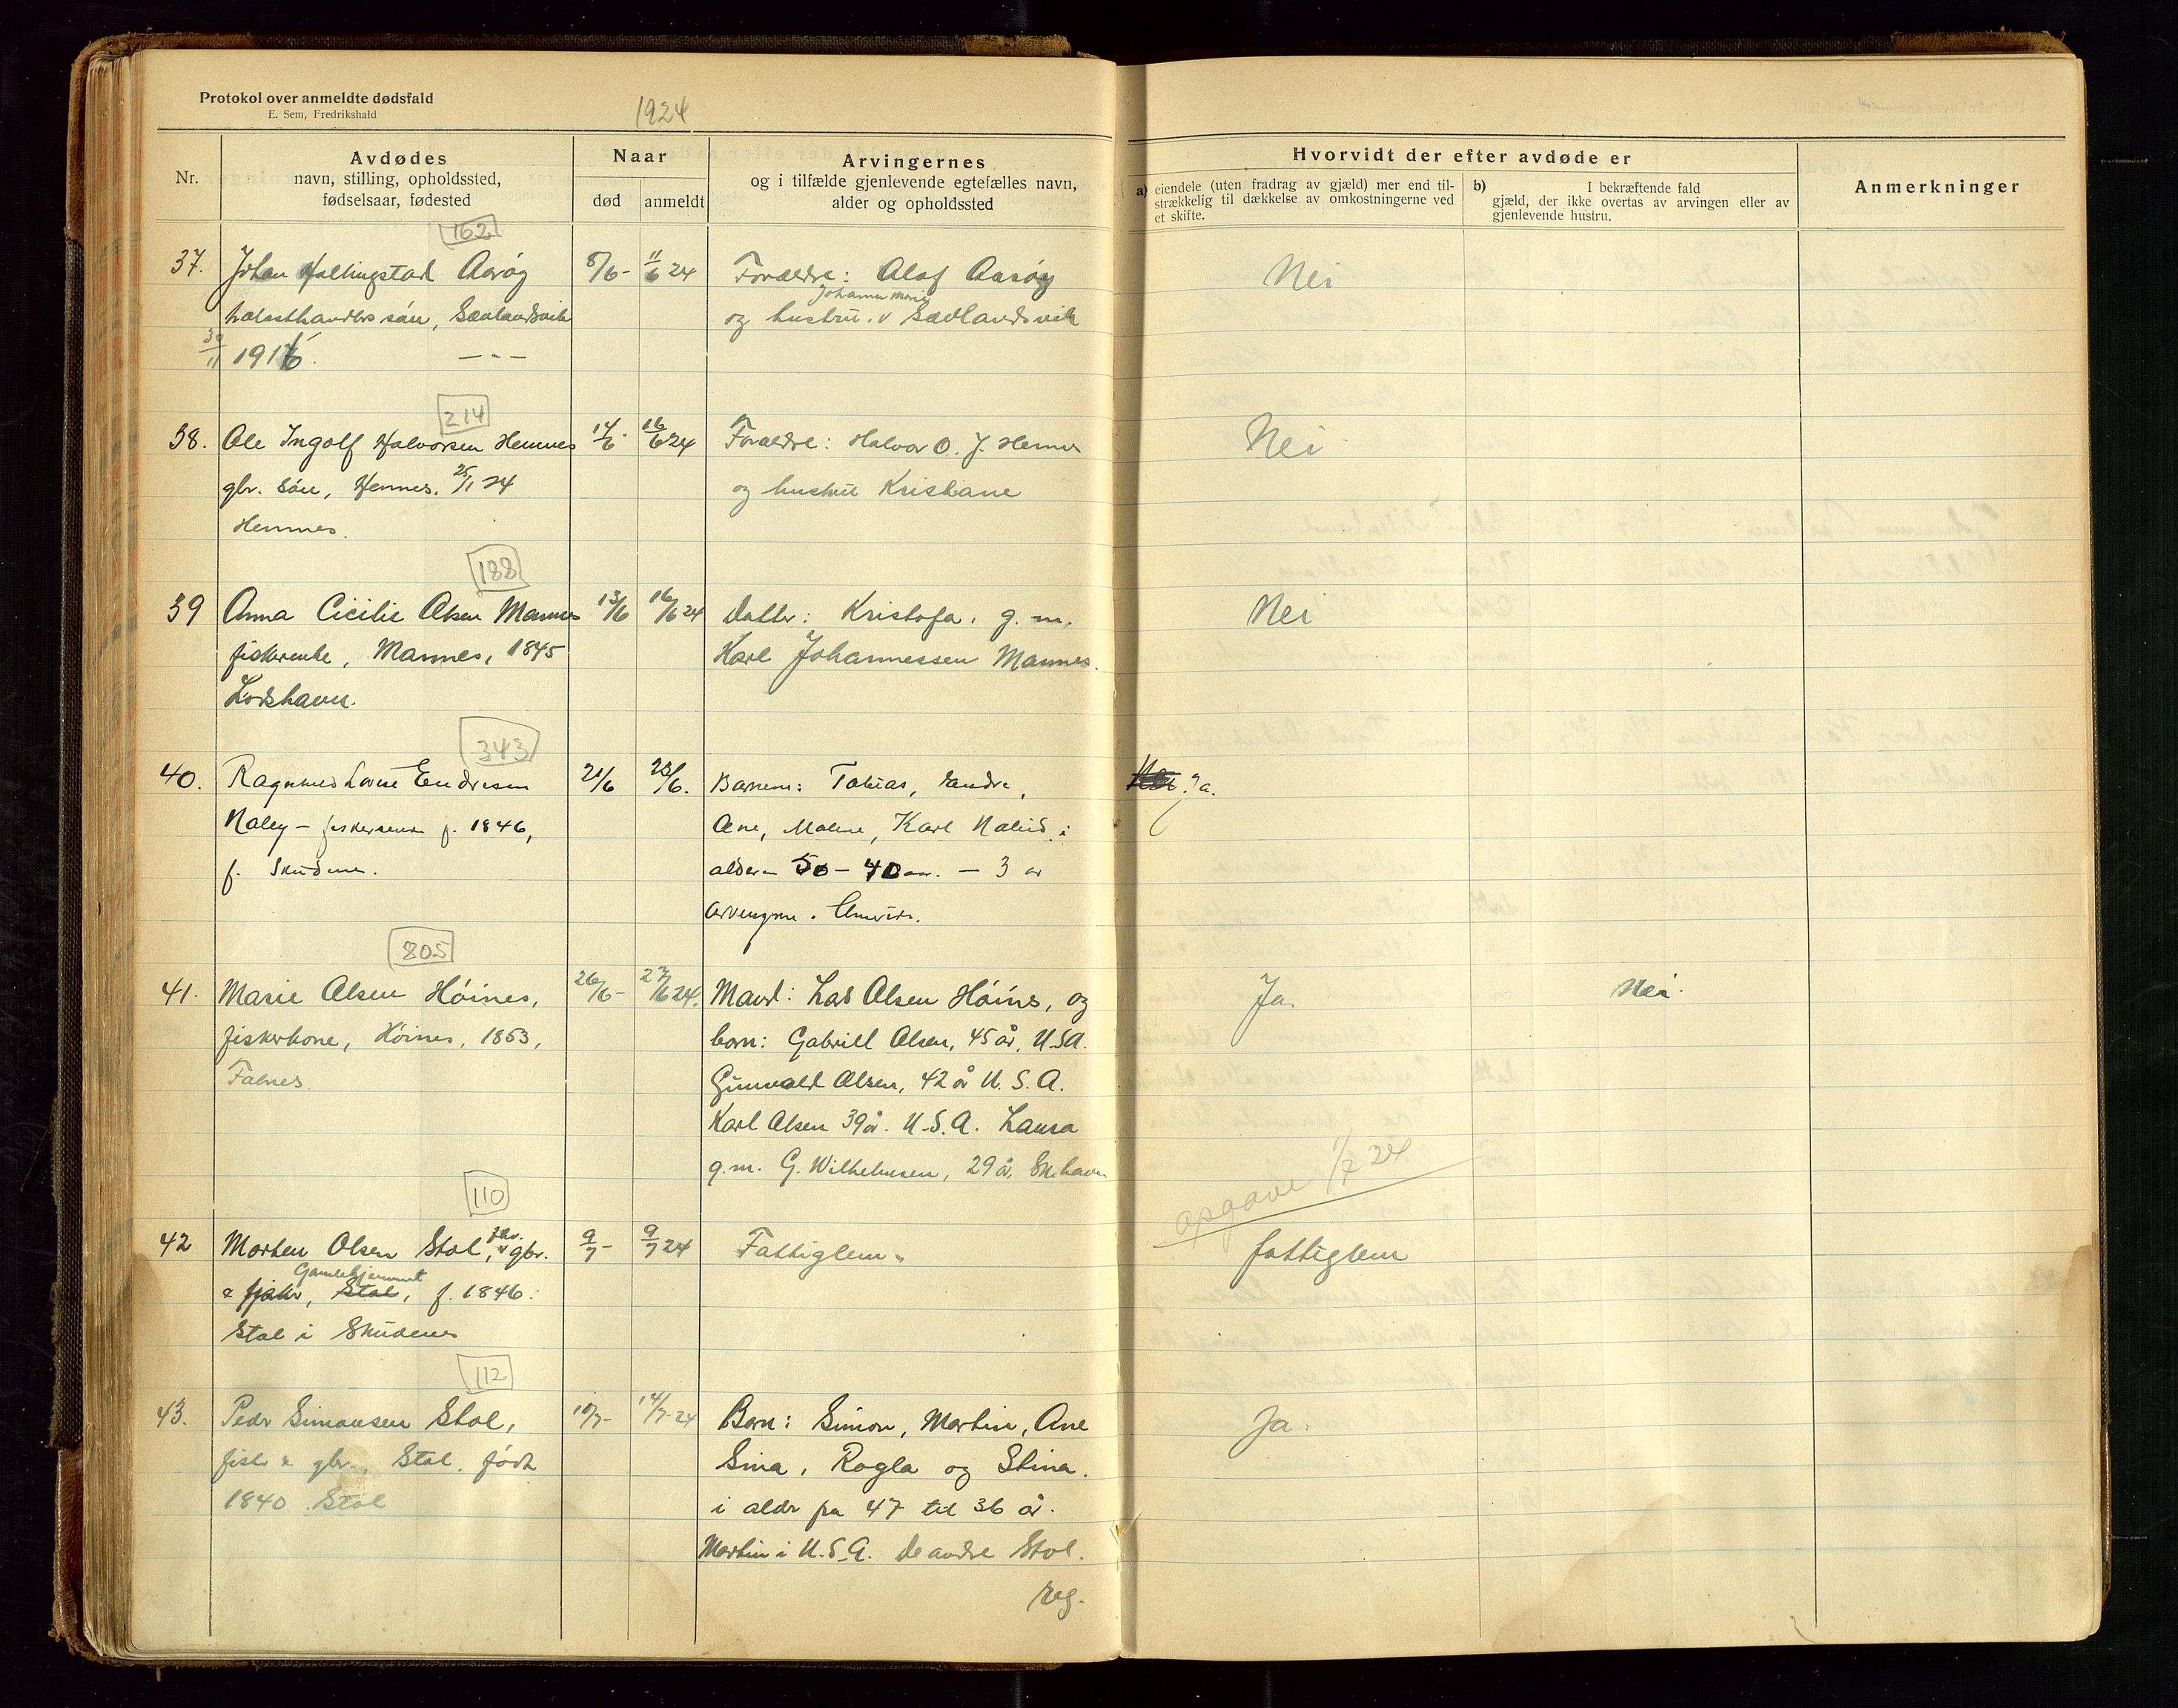 Protokol over anmeldte dødsfald
E. Sem, Fredrikshald
1924
Nr.
Avdødes
navn, stilling, opholdssted,
fødselsaar, fødested
Naar
død
anmeldt
Arvingernes
og i tilfælde gjenlevende egtefælles navn,
alder og opholdssted
Hvorvidt der efter avdøde er
a) eiendele (uten fradrag av gjæld) mer end til-
strækkelig til dækkelse av omkostningerne ved
et skifte.
b) I bekræftende fald
gjæld, der ikke overtas av arvingen eller av
gjenlevende hustru.
Anmerkninger
162
37. Johan Hallingstad Aarøy 8/6- 11/6 24 Forældre: Olaf Aarøy Nei
Johanna Marie
søn, Sævlandsvik og hustru. v Sævlandsvik
30/11 1916. — " —
214
38. Ole Ingolf Halvorsen Hemnes 14/6- 16/6 24 Forældre: Halvor O. J. Hemnes Nei
gbr. søn, Hemnes. 25/1 24 og hustru Kristiane
Hemnes.
188
39 Anna Cicilie Olsen Mannes 13/6 16/6 24 Datter: Kristofa. g. m. Nei
fiskerenke, Mannes, 1845 Karl Johannessen Mannes.
Lodshavn.
343
40. Endresen 21/6 23/6. Tobias, Nei. Ja.
f. 1846, Ane, Malene, Karl
f. Skudenes. alder 50 - 40 aar. — 3 av
arvingerne i Amerika.
805
41. Marie Olsen Høines, 26/6- 27/6 24. Mand: Lars Olsen Høines, og Ja. Nei.
fiskerkone, Høines, 1853, born: Gabriell Olsen, 45 år, U.S.A.
Falnes. Gunvald Olsen, 42 år U.S.A.
Karl Olsen 39 år. U.S.A. Laura
g.m. G. Wilhelmsen, 29 år, Sk.havn
opgave 1/7 24
110
42 Morten Olsen Stol, fhv. v gbr. 9/7- 9/7 24 Fattiglem. fattiglem
Gamlehjemmet
& fisker, Stol, f. 1846.
Stol i Skudenes
112
43. Peder Simonsen Stol, 10/7- 14/7-24 Born: Simon, Martin, Ane Ja.
fisker & gbr., Stol. født Sina, Ragla og Stina.
1840 Stol i alder fra 47 til 36 år.
Martin i U.S.A. De andre Stol.
reg.